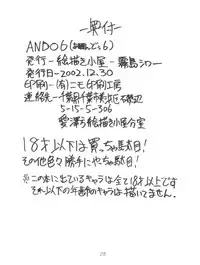 －奥付－
AND06(あんど6)
発行－絵描き小屋－霧島シロー
発行日－2002.12.30
印刷－(有)ニモ印刷工房
連絡先－千葉県千葉市美浜区
5-15-5-306
絵描き小屋分室
18才以下は買っちゃ駄目！
その他色々勝手にやっちゃ駄目！
※この本に出ているキャラは全て18才以上です
それ以下の年齢のキャラは描いてません。
28